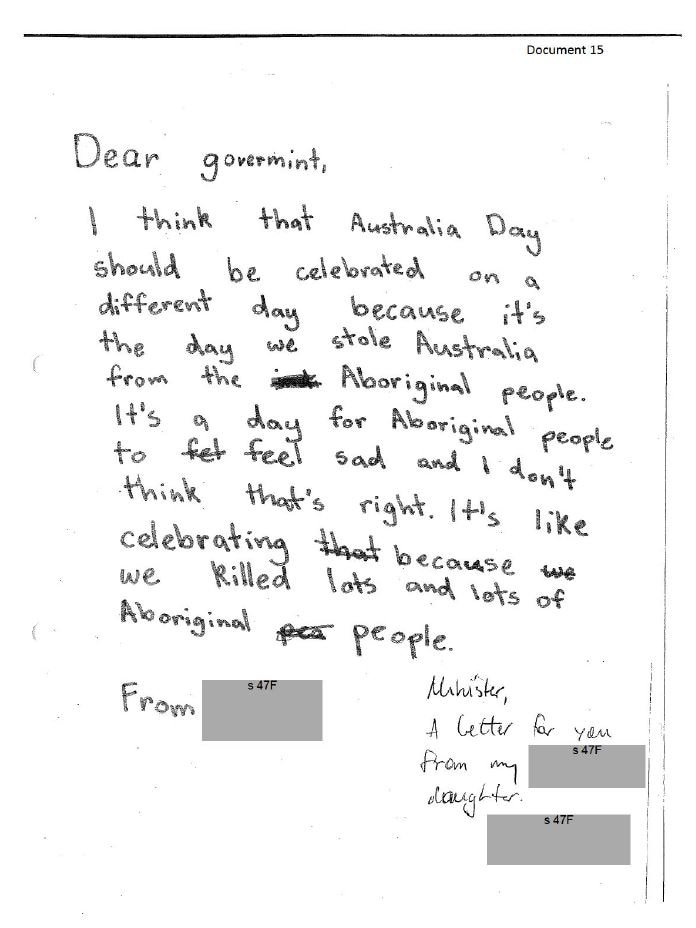 Document 15
Dear govermint,
I think that Australia Day
should be celebrated on a
different day because it's
the day we stole Australia
from the Aboriginal people.
It's a day for Aboriginal people
to fet feel sad and I don't
think that's right. It's like
celebrating that because we
we killed lots and lots of
Aboriginal pea people.
From s 47F
Minister,
A letter for you
from my s 47F
daughter.
s 47F